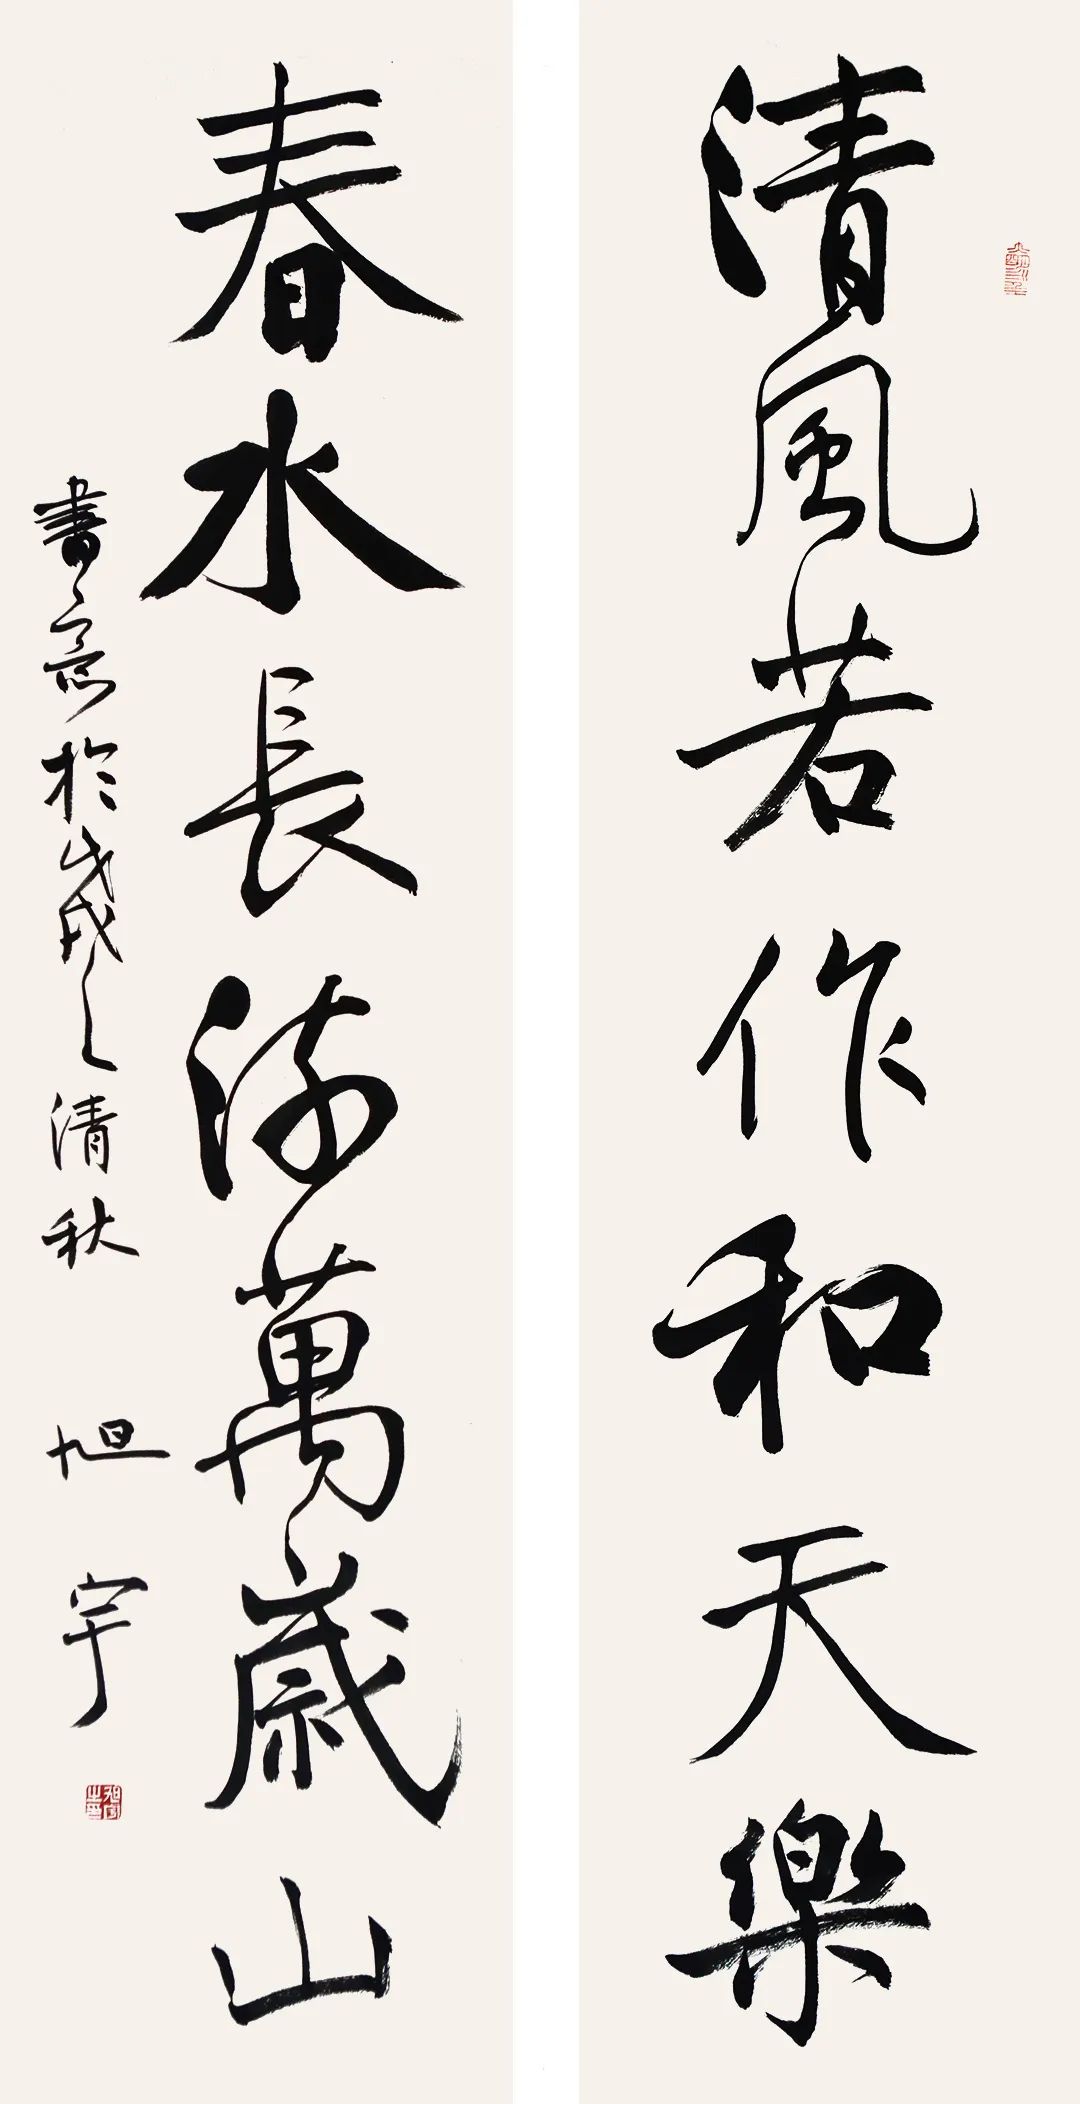 清風若作和天樂
春水長流萬歲山
書意於戊戌之清秋 旭宇
旭宇之印